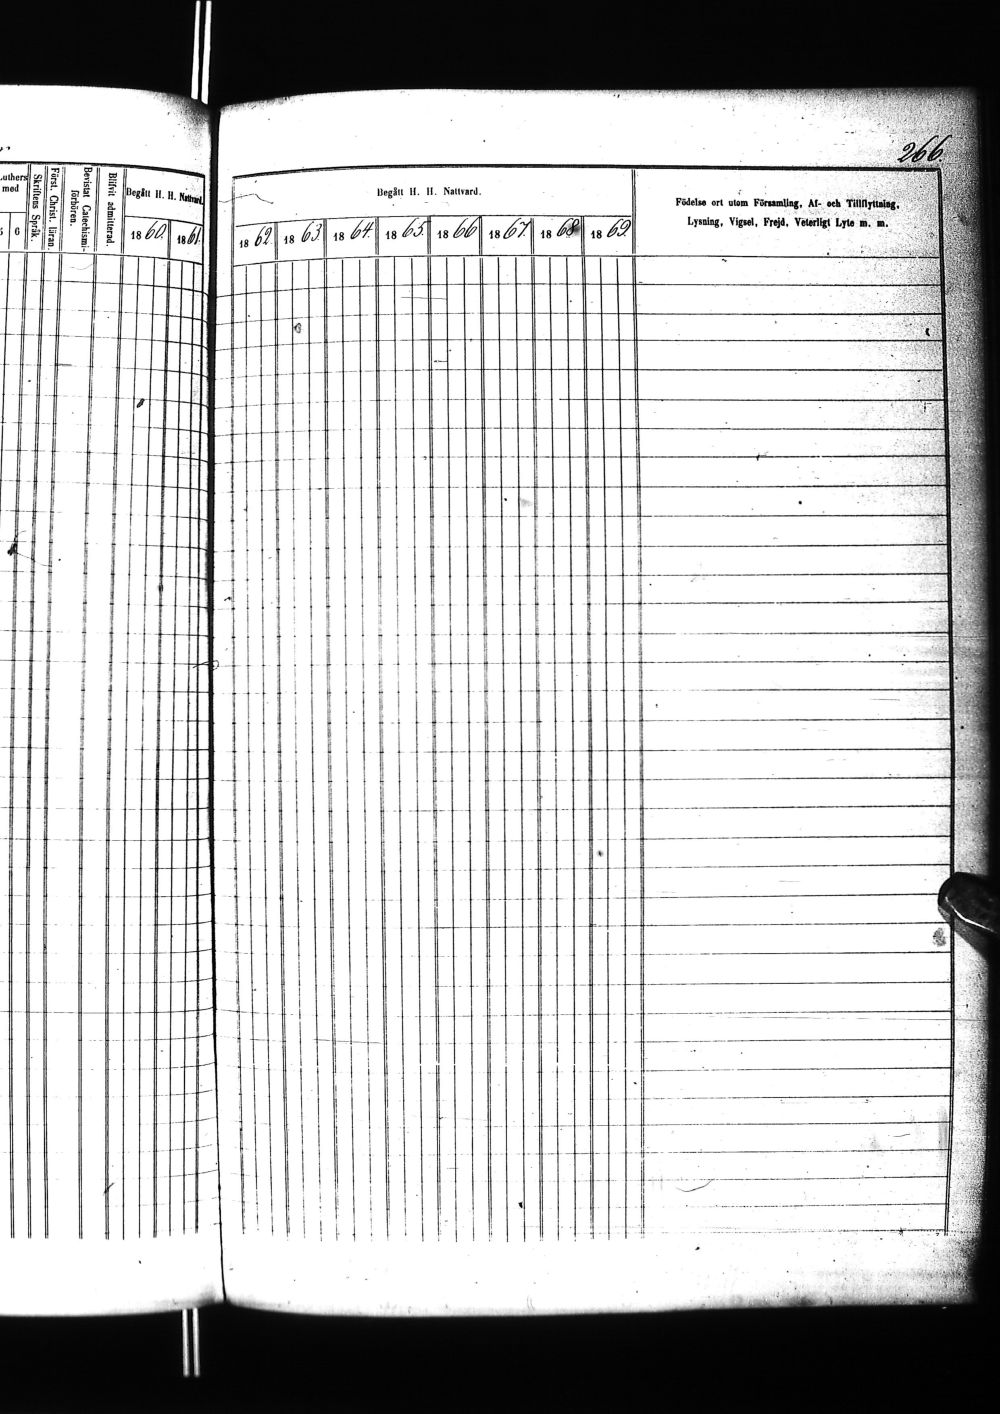 266.
Luthers
med
5 6
Skriftens Språk.
Först. Christ. läran.
Bevistat Catechismi-
förhören.
Blifvit admitterad.
Begått H. H. Nattvard.
1860. 1861.
Begått H. H. Nattvard.
1862. 1863. 1864. 1865. 1866 1867. 1868 1869.
Födelse ort utom Församling, Af- och Tillflyttning,
Lysning, Vigsel, Frejd, Veterligt Lyte m. m.